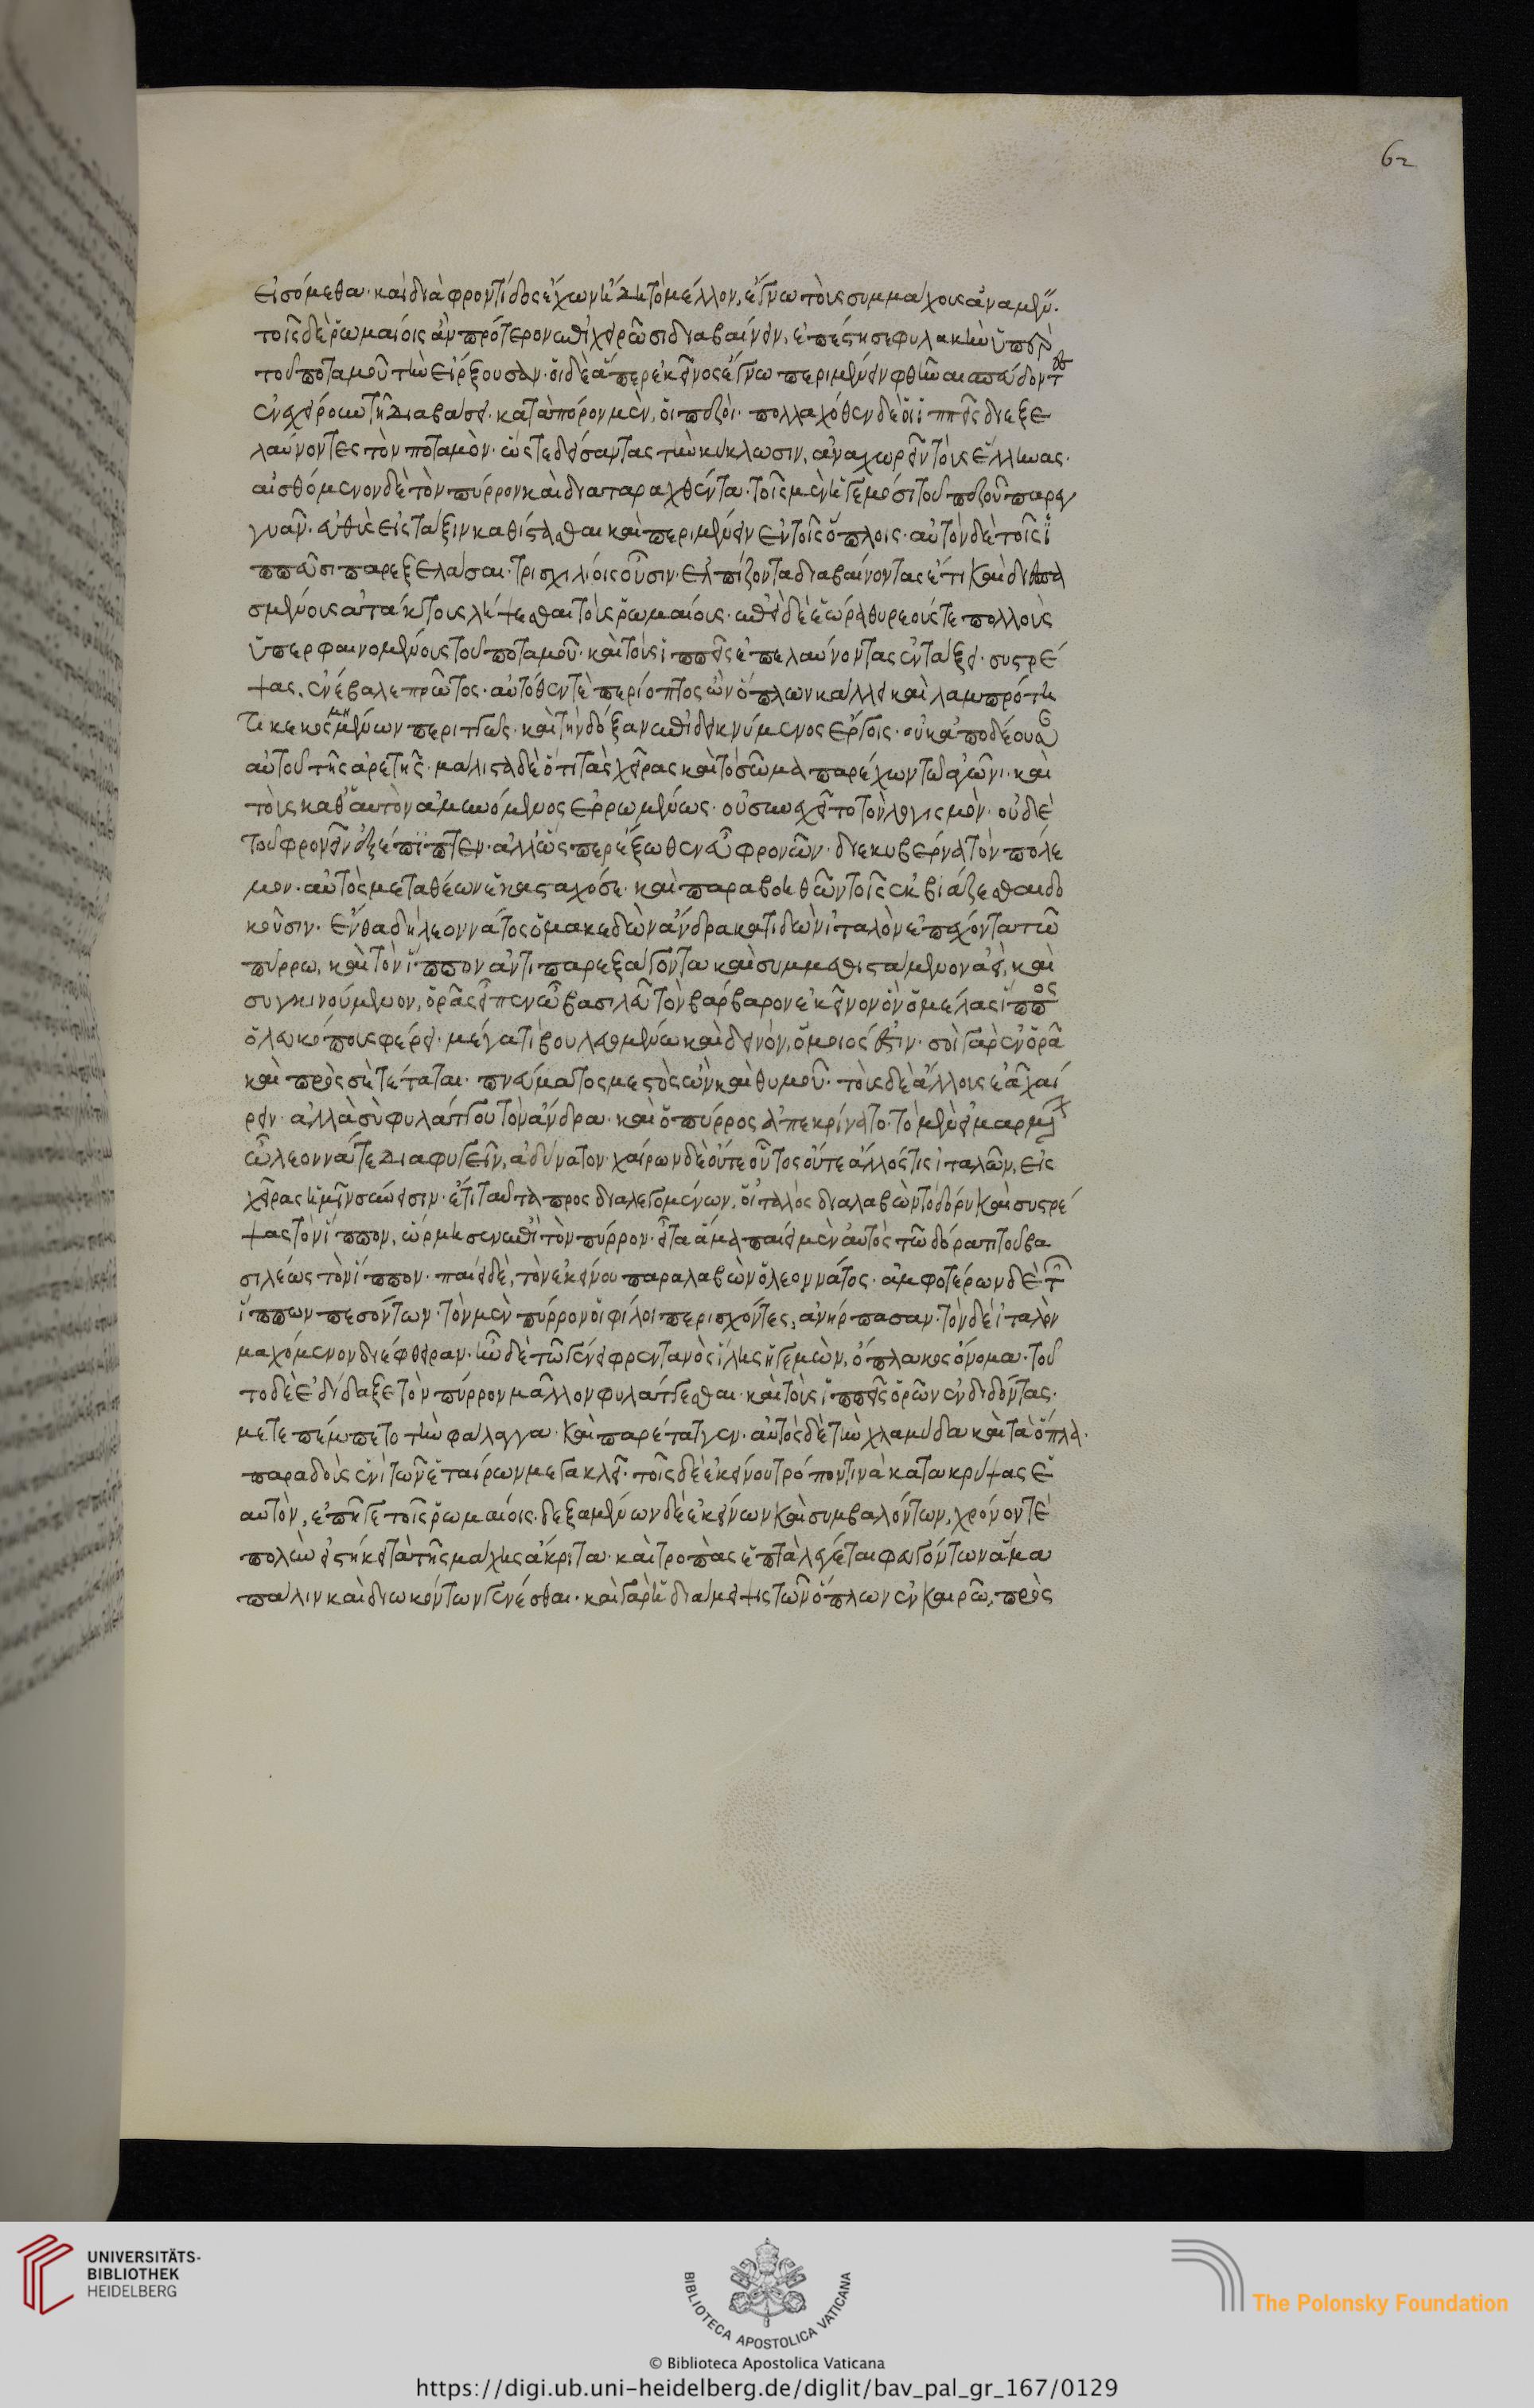 62
εἰσόμεθα· καὶ διὰ φροντίδος ἔχων ἤδη τὸ μέλλον, ἔγνω τοὺς συμμάχους ἀναμένειν·
τοῖς δὲ ῥωμαίοις ἂν πρότερον ἐπιχειρῶσι διαβαίνειν, ἐπέστησε φυλακὴν ὑπὲρ
τοῦ ποταμοῦ τὴν εἴρξουσαν· οἱ δὲ ἅπερ ἐκεῖνος ἔγνω περιμένειν φθῆναι σπεύδοντες
ἐνεχείρουν τῇ διαβάσει· κατὰ πόρον μὲν, οἱ πεζοὶ· πολλαχόθεν δὲ οἱ ἱππεῖς διεξε
λαύνοντες τὸν ποταμὸν· ὥστε δείσαντας τὴν κύκλωσιν, ἀναχωρεῖν τοὺς ἕλληνας·
αἰσθόμενον δὲ τὸν πύρρον καὶ διαταραχθέντα· τοῖς μὲν ἡγεμόσι τοῦ πεζοῦ παρεγ
γυᾶν· εὐθὺς εἰς τάξιν καθίστασθαι καὶ περιμένειν ἐν τοῖς ὅπλοις· αὐτὸν δὲ τοῖς ἱ
ππεῦσι παρεξελάσαι· τρισχιλίοις οὖσιν· ἐλπίζοντα διαβαίνοντας ἔτι καὶ διεσπα
σμένους ἀτάκτους λήψεσθαι τοὺς ῥωμαίους· ἐπεὶ δὲ ἑώρα θυρεούς τε πολλοὺς
ὑπερφαινομένους τοῦ ποταμοῦ· καὶ τοὺς ἱππεῖς ἐπελαύνοντας ἐν τάξει· συστρέ
ψας, ἐνέβαλε πρῶτος· αὐτόθεν τὲ περίοπτος ὢν ὅπλων κάλλει καὶ λαμπρότη
τι κεκοσμημένων περιττῶς· καὶ τὴν δόξαν ἐπιδεικνύμενος ἔργοις· οὐκ ἀποδέουσαν
αὐτοῦ τῆς ἀρετῆς· μάλιστα δὲ ὅτι τὰς χεῖρας καὶ τὸ σῶμα παρέχων τῷ ἀγῶνι· καὶ
τοὺς καθ' αὑτὸν ἀμυνόμενος ἐρρωμένως· οὐ συνεχεῖτο τὸν λογισμὸν· οὐδὲ
τοῦ φρονεῖν ἐξέπιπτεν· ἀλλ' ὥσπερ ἔξωθεν εὖ φρονῶν· διεκυβέρνα τὸν πόλε
μον· αὐτὸς μεταθέων ἑκασταχόσε· καὶ παραβοηθῶν τοῖς ἐκβιάζεσθαι δο
κοῦσιν· ἔνθα δὴ λεοννάτος ὁ μακεδὼν ἄνδρα κατιδὼν ἰταλὸν ἐπέχοντα τῷ
πύρρω, καὶ τὸν ἵππον ἀντιπαρεξάγοντα καὶ συμμεθιστάμενον ἀεὶ, καὶ
συγκινούμενον, ὁρᾷς εἶπεν ὦ βασιλεῦ τὸν βάρβαρον ἐκεῖνον ὃν ὁ μέλας ἵππος
ὁ λευκόπους φέρει· μέγα τι βουλευομένω καὶ δεινὸν, ὅμοιός ἐστιν· σοὶ γὰρ ἐνορᾷ
καὶ πρὸς σὲ τέταται· πνεύματος μεστὸς ὢν καὶ θυμοῦ· τοὺς δὲ ἄλλους ἐᾷ χαί
ρειν· ἀλλὰ σὺ φυλάττου τὸν ἄνδρα· καὶ ὁ πύρρος ἀπεκρίνατο· τὸ μὲν εἱμαρμένον
ὦ λεοννάτε διαφυγεῖν, ἀδύνατον· χαίρων δὲ οὔτε οὗτος οὔτε ἄλλός τις ἰταλῶν, εἰς
χεῖρας ἡμῖν σύνεισιν· ἔτι ταῦτα προς διαλεγομένων, ὁ ἰταλὸς διαλαβὼν τὸ δόρυ καὶ συστρέ
ψας τὸν ἵππον, ὥρμησεν ἐπὶ τὸν πύρρον· εἶτα ἅμα παίει μὲν αὐτὸς τῷ δόρατι τοῦ βα
σιλέως τὸν ἵππον· παίει δὲ, τὸν ἐκείνου παραλαβὼν ὁ λεοννάτος· ἀμφοτέρων δὲ τῶν
ἵππων πεσόντων· τὸν μὲν πύρρον οἱ φίλοι περισχόντες, ἀνήρπασαν· τὸν δὲ ἰταλὸν
μαχόμενον διέφθειραν· ἦν δὲ τῷ γένει φρεντανὸς ἴλης ἡγεμὼν, ὄπλακος ὄνομα· τοῦ
το δὲ ἐδίδαξε τὸν πύρρον μᾶλλον φυλάττεσθαι· καὶ τοὺς ἱππεῖς ὁρῶν ἐνδιδόντας·
μετεπέμπετο τὴν φάλαγγα· καὶ παρέταττεν· αὐτὸς δὲ τὴν χλαμύδα καὶ τὰ ὅπλα·
παραδοὺς ἑνὶ τῶν ἑταίρων μεγακλεῖ· τοῖς δὲ ἐκείνου τρόπον τινὰ κατακρύψας ἑ
αυτὸν, ἐπῆγε τοῖς ῥωμαίοις· δεξαμένων δὲ ἐκείνων καὶ συμβαλόντων, χρόνον τὲ
πολὺν εἱστήκει τὰ τῆς μάχης ἄκριτα· καὶ τροπὰς ἑπτὰ λέγεται φευγόντων ἅμα
πάλιν καὶ διωκόντων γενέσθαι· καὶ γὰρ ἡ διάμειψις τῶν ὅπλων ἐν καιρῷ, πρὸς
UNIVERSITÄTS-
BIBLIOTHEK
HEIDELBERG
BIBLIOTECA APOSTOLICA VATICANA
The Polonsky Foundation
© Biblioteca Apostolica Vaticana
https://digi.ub.uni-heidelberg.de/diglit/bav_pal_gr_167/0129